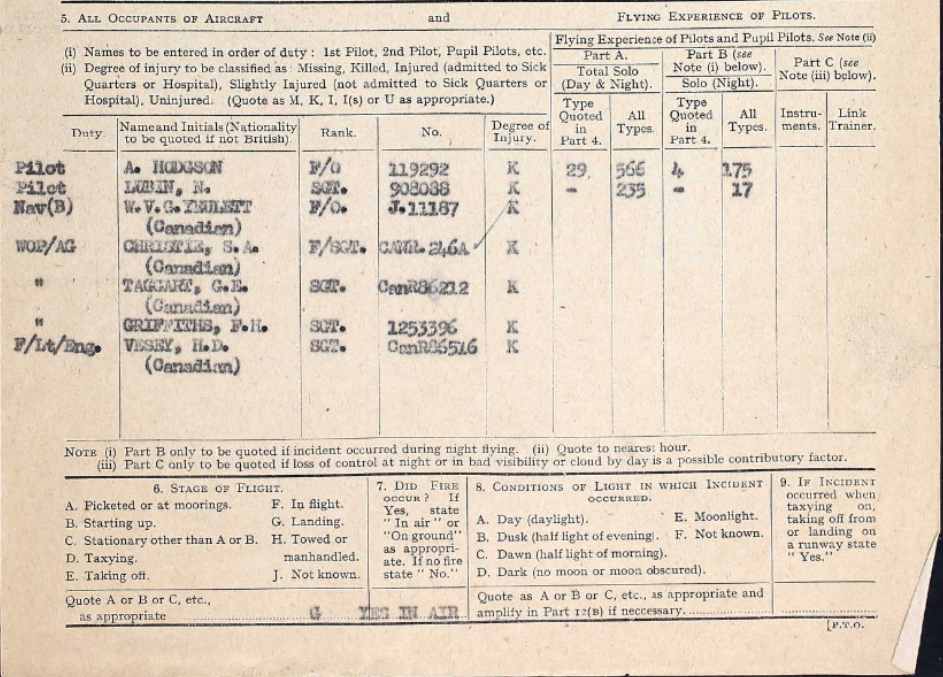 5. ALL OCCUPANTS OF AIRCRAFT and FLYING EXPERIENCE OF PILOTS.
(i) Names to be entered in order of duty : 1st Pilot, 2nd Pilot, Pupil Pilots, etc.
(ii) Degree of injury to be classified as : Missing, Killed, Injured (admitted to Sick
Quarters or Hospital), Slightly Injured (not admitted to Sick Quarters or
Hospital), Uninjured. (Quote as M, K, I, I(s) or U as appropriate.)
Flying Experience of Pilots and Pupil Pilots. See Note (ii)
Part A.
Total Solo
(Day & Night).
Part B (see
Note (i) below).
Solo (Night).
Part C (see
Note (iii) below).
Duty.
Name and Initials (Nationality
to be quoted if not British).
Rank.
No.
Degree of
Injury.
Type
Quoted
in
Part 4.
All
Types.
Type
Quoted
in
Part 4.
All
Types.
Instru-
ments.
Link
Trainer.
Pilot A. HODGSON F/O 119292 K 29 566 4 175
Pilot LUBIN, N. SGT. 908088 K - 235 - 17
Nav(B) W.V.G. YEULETT F/O. J.11187 K
(Canadian)
WOP/AG CHRISTIE, S.A. F/SGT. CANR.246A K
(Canadian)
" TAGGART, G.E. SGT. CanR86212 K
(Canadian)
" GRIFFITHS, F.H. SGT. 1253396 K
F/Lt/Eng. VESEY, H.D. SGT. CanR86516 K
(Canadian)
NOTE (i) Part B only to be quoted if incident occurred during night flying. (ii) Quote to nearest hour.
(iii) Part C only to be quoted if loss of control at night or in bad visibility or cloud by day is a possible contributory factor.
6. STAGE OF FLIGHT.
A. Picketed or at moorings. F. In flight.
B. Starting up. G. Landing.
C. Stationary other than A or B. H. Towed or
D. Taxying. manhandled.
E. Taking off. J. Not known.
Quote A or B or C, etc.,
as appropriate G
7. DID FIRE
OCCUR? If
Yes, state
"In air" or
"On ground"
as appropri-
ate. If no fire
state "No."
YES IN AIR
8. CONDITIONS OF LIGHT IN WHICH INCIDENT
OCCURRED.
A. Day (daylight). E. Moonlight.
B. Dusk (half light of evening). F. Not known.
C. Dawn (half light of morning).
D. Dark (no moon or moon obscured).
Quote as A or B or C, etc., as appropriate and
amplify in Part 12(B) if neccessary.
9. IF INCIDENT
occurred when
taxying on,
taking off from
or landing on
a runway state
"Yes."
[P.T.O.